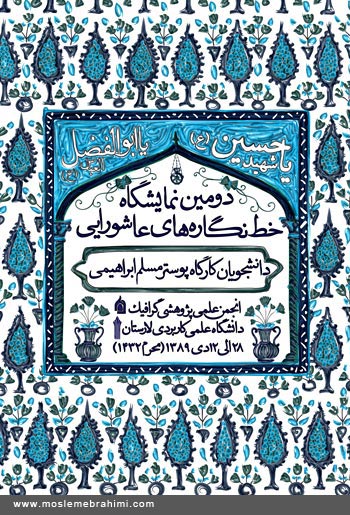 یا حسین (ع) شهید
یا ابوالفضل العباس (ع)
دومین نمایشگاه
خط نگاره های عاشورایی
دانشجویان کارگاه پوستر مسلم ابراهیمی
انجمن علمی پژوهشی گرافیک
دانشگاه علمی کاربردی لارستان
۲۸ الی ۱۲ دی ۱۳۸۹ (محرم ۱۴۳۲)
www.moslemebrahimi.com